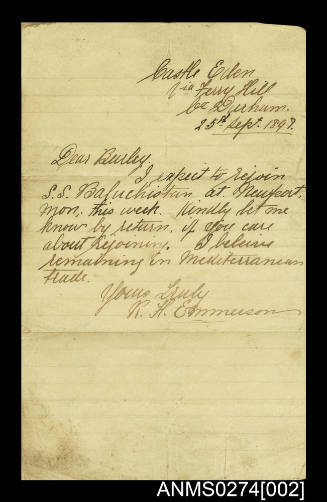 Castle Eden
via Ferry Hill
Co Durham.
25th Sept. 1897.
Dear Burley,
I expect to rejoin
S.S. Baluchistan at Newport.
Mon, this week. Kindly let me
know by return, if you care
about rejoining. I believe
remaining in Mediterranean
trade.
Yours truly
R. H. Emmerson
ANMS0274[002]